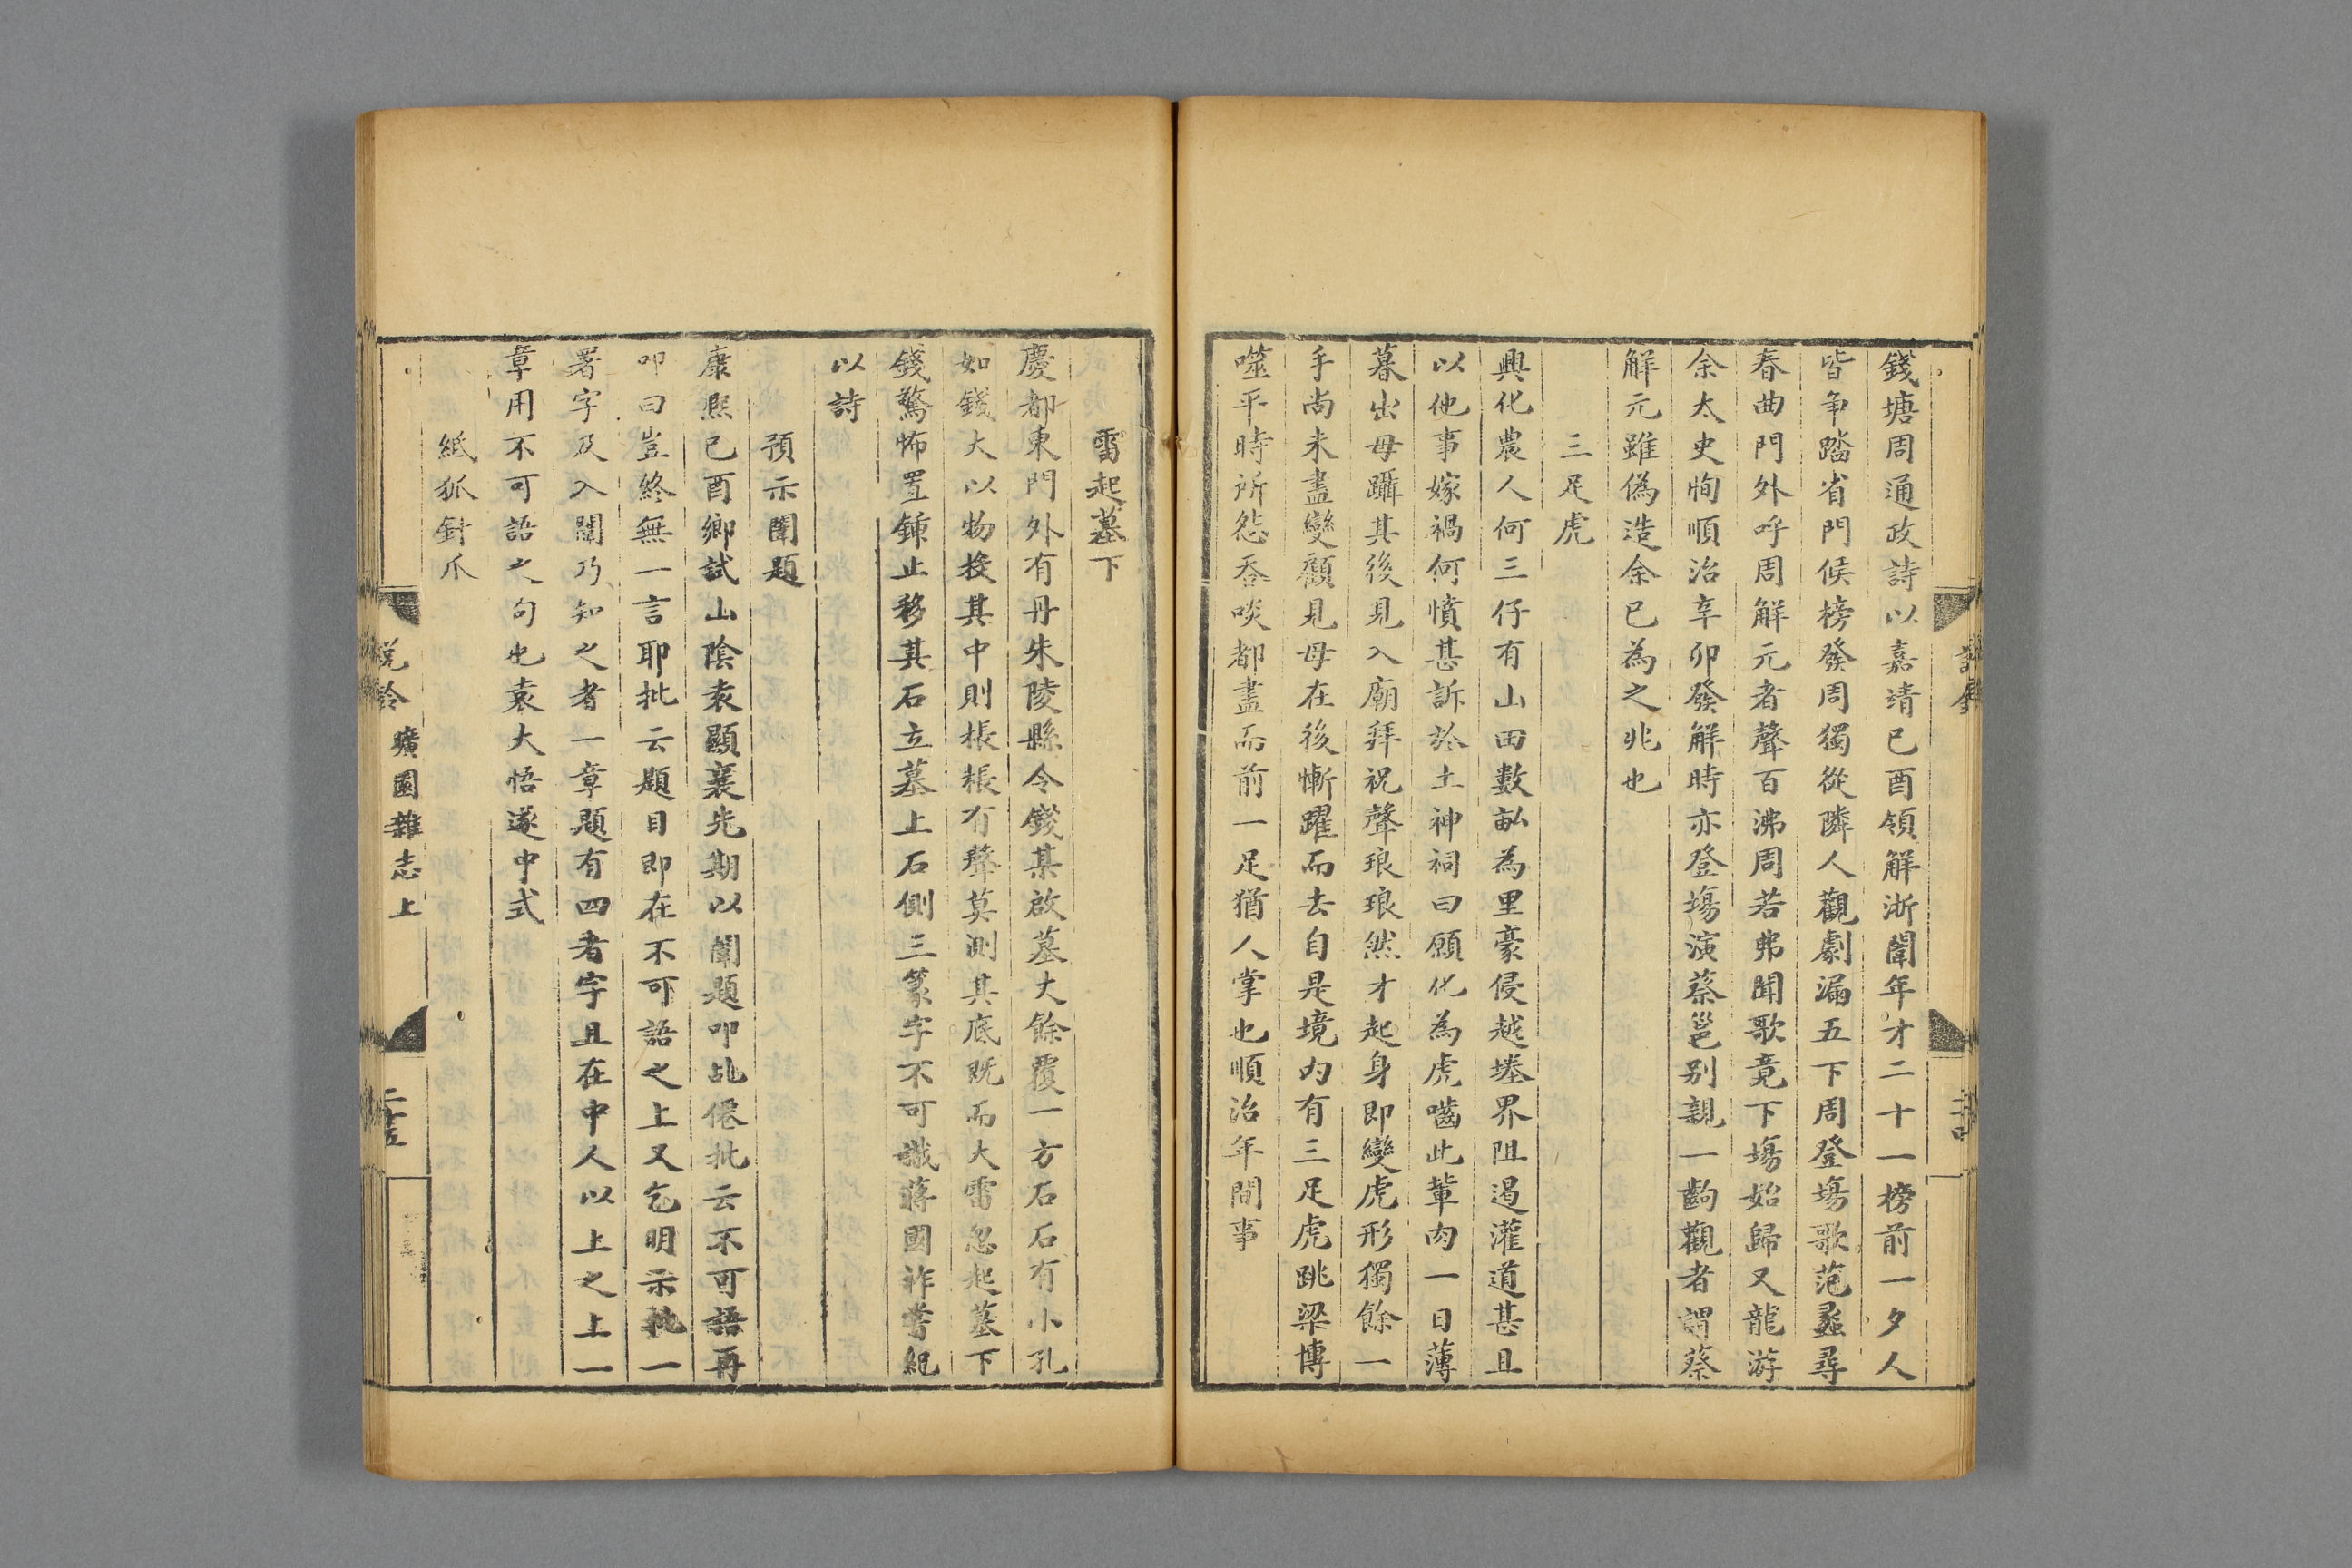 錢塘周通政詩以嘉靖己酉領解浙闈年才二十一榜前一夕人
皆爭踏省門候榜發周獨從隣人觀劇漏五下周登塲歌范蠡尋
春曲門外呼周解元者聲百沸周若弗聞歌竟下塲始歸又龍游
余太史恂順治辛卯發解時亦登塲演蔡邕别親一齣觀者謂蔡
解元雖偽造余已為之兆也
三足虎
興化農人何三仔有山田數畝為里豪侵越塟界阻遏灌道甚且
以他事嫁禍何憤甚訴於土神祠曰願化為虎嚙此輩肉一日薄
暮出母躡其後見入廟拜祝聲琅琅然才起身即變虎形獨餘一
手尚未盡變顧見母在後慚躍而去自是境内有三足虎跳梁博
噬平時所怨吞啖都盡而前一足猶人掌也順治年間事
二十四
雷起墓下
慶都東門外有丹朱陵縣令錢某啟墓大餘覆一方石石有小孔
如錢大以物投其中則棖棖有聲莫測其底既而大雷忽起墓下
錢驚怖置鍤止移其石立墓上石側三篆字不可識蔣國祚嘗紀
以詩
預示闈題
康熙己酉鄉試山陰袁顯襄先期以闈題叩乩僊批云不可語再
叩曰豈終無一言耶批云題目即在不可語之上又乞明示批一
署字及入闈乃知之者一章題有四者字且在中人以上之上一
章用不可語之句也袁大悟遂中式
紙狐針爪
說鈴
曠園雜志上
二十五